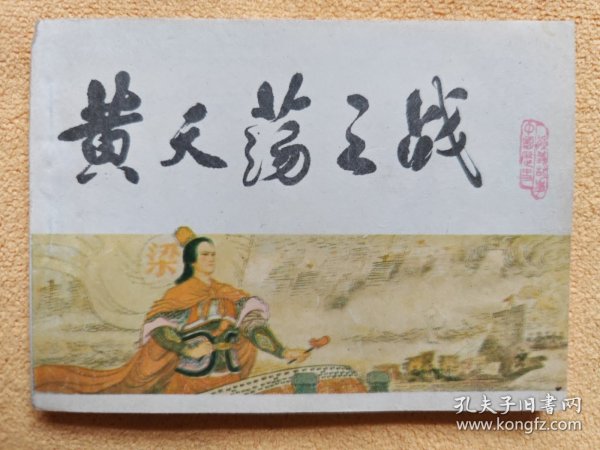 黄天荡之战
梁
孔夫子旧书网
www.kongfz.com